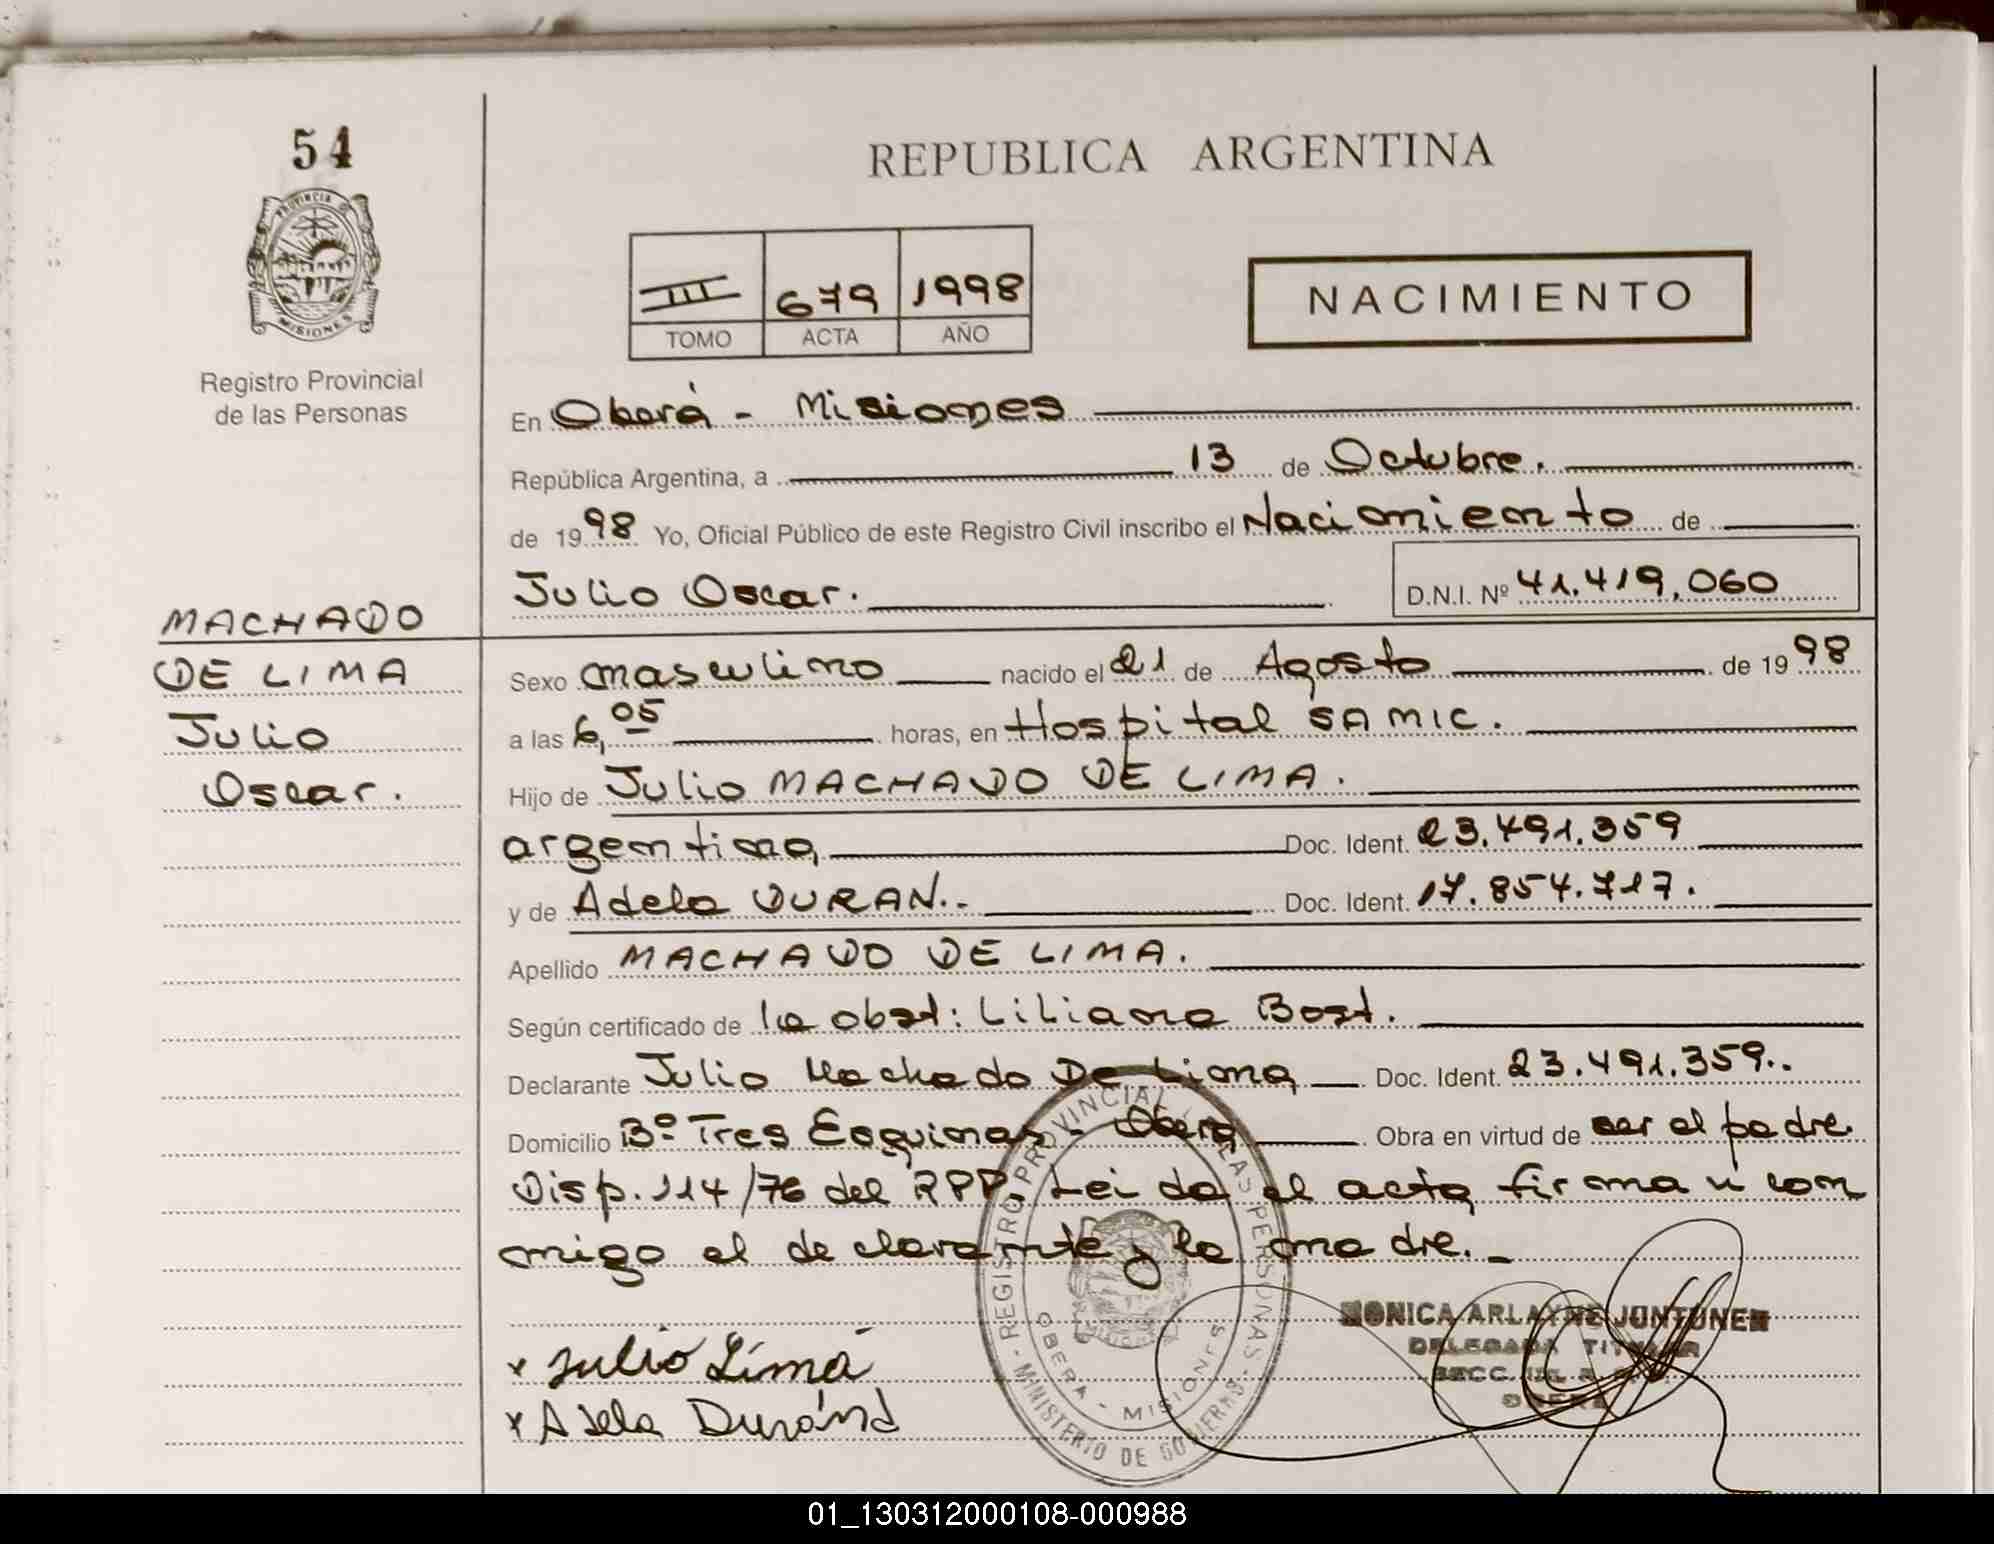 54
PROVINCIA D
MISIONES
Registro Provincial
de las Personas
MACHADO
DE LIMA
Julio
Oscar.
REPUBLICA ARGENTINA
III 679 1998
TOMO ACTA AÑO
NACIMIENTO
En Oberá - Misiones
República Argentina, a 13 de Octubre.
de 1998 Yo, Oficial Público de este Registro Civil inscribo el Nacimiento de
Julio Oscar. D.N.I. Nº 41.419.060
Sexo masculino nacido el 21 de Agosto de 1998
a las 6,05 horas, en Hospital SAMIC.
Hijo de Julio MACHADO DE LIMA.
argentino, Doc. Ident. 23.491.359
y de Adela DURAN.- Doc. Ident. 17.854.717.
Apellido MACHADO DE LIMA.
Según certificado de la obst: Liliana Bost.
Declarante Julio Machado De Lima Doc. Ident. 23.491.359..
Domicilio Bº Tres Esquinas - Oberá Obra en virtud de ser el padre
Disp. 114/76 del RPP, Leida el acta firman con
migo el declarante y la madre.
x Julio Lima
x Adela Duránd
REGISTRO PROVINCIAL LAS PERSONAS - MINISTERIO DE GOBIERNO
OBERA - MISIONES
MONICA ARLAYNE JUNTUNEN
DELEGADA TITULAR
SECC.
OBERA
01_130312000108-000988